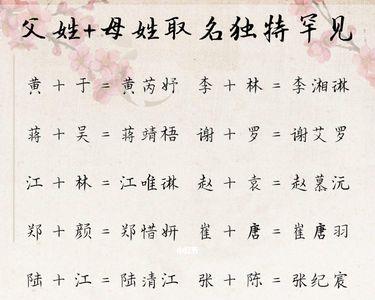 父姓+母姓取名独特罕见
黄+于=黄芮妤 李+林=李湘琳
蒋+吴=蒋靖梧 谢+罗=谢艾罗
江+林=江唯琳 赵+袁=赵慕沅
郑+颜=郑惜妍 崔+唐=崔唐羽
小红书
陆+江=陆清江 张+陈=张纪宸